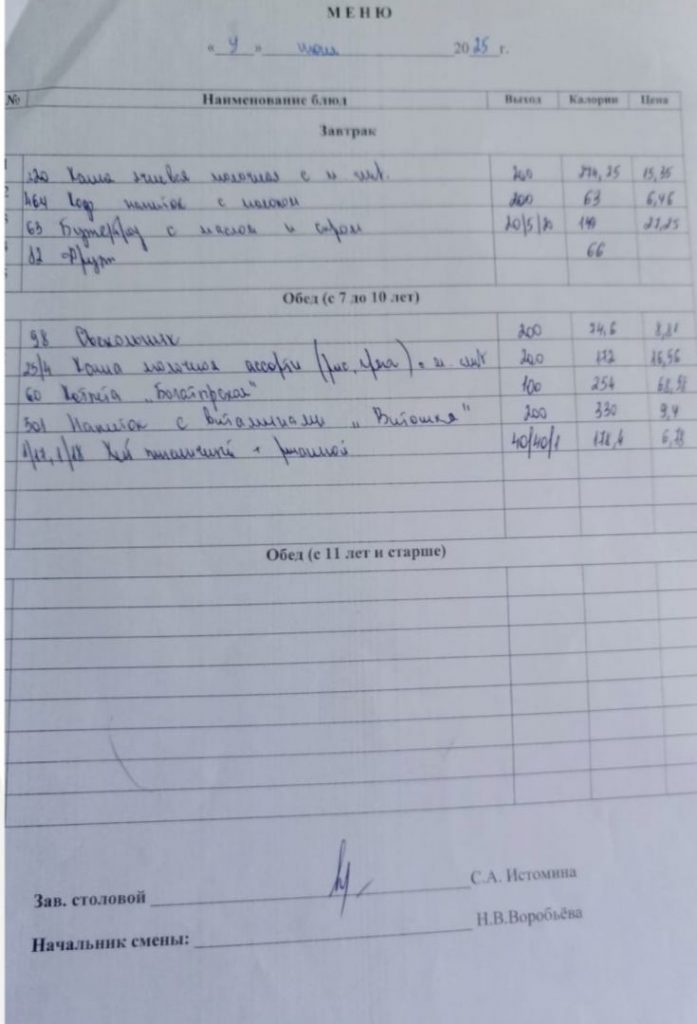 МЕНЮ
« 4 » 2025 г.
№ Наименование блюд Выход Калории Цена
Завтрак
220 Каша молочная с м 200 15,35
464 напиток с молоком 200 63 6,46
63 Бутерброд с маслом и сыром 20/5/20 140
82 Фрукт 66
Обед (с 7 до 10 лет)
98 Рассольник 200
25/4 Каша молочная ассорти (рис, ) с м. 200 172
60 Котлета „Богатырская" 100 254
301 Напиток с витаминами „Витошка" 200 330 9,4
Хлеб пшеничный + ржаной 40/40/1
Обед (с 11 лет и старше)
Зав. столовой С.А. Истомина
Начальник смены: Н.В.Воробьёва